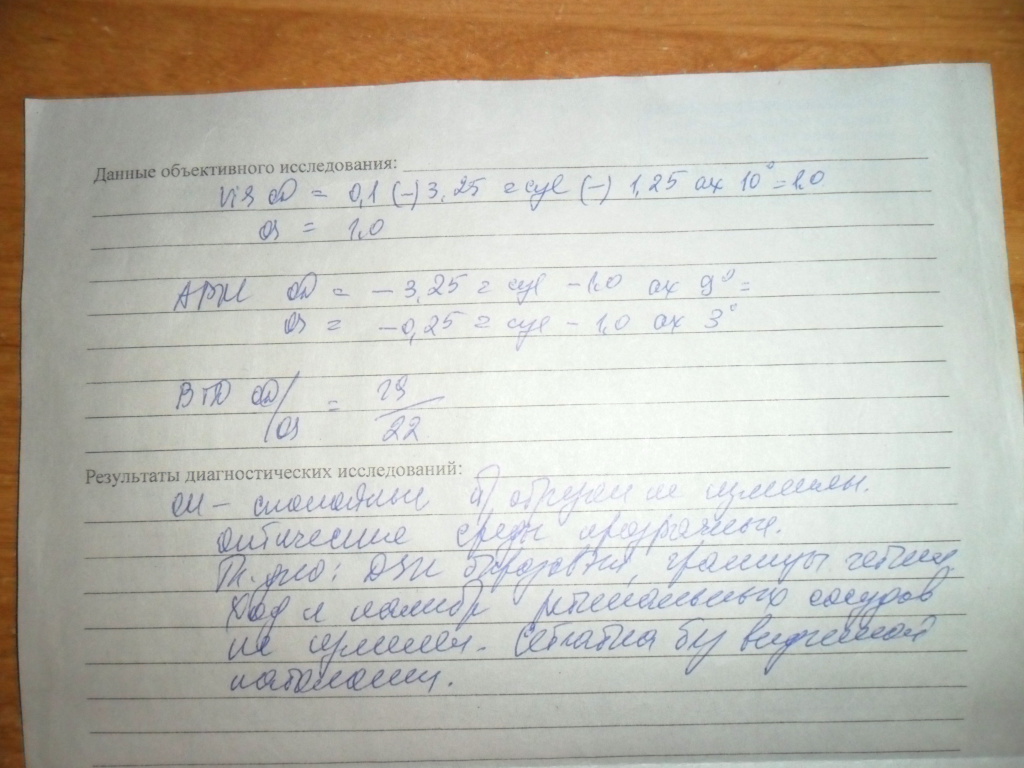 Данные объективного исследования:
Vis OD = 0,1 (-) 3,25 = cyl (-) 1,25 ax 10° = 1.0
OS = 1,0
АРМ OD = - 3,25 = cyl - 1,0 ax 9° =
OS = - 0,25 = cyl - 1,0 ax 3°
ВГД OD/OS = 19/22
Результаты диагностических исследований:
OU - придатный не изменены.
оптические среды прозрачные.
Гл. дно: ДЗН б/розовый, границы четкие
Ход и калибр ретинальных сосудов
не изменен. Сетчатка без видимой
патологии.